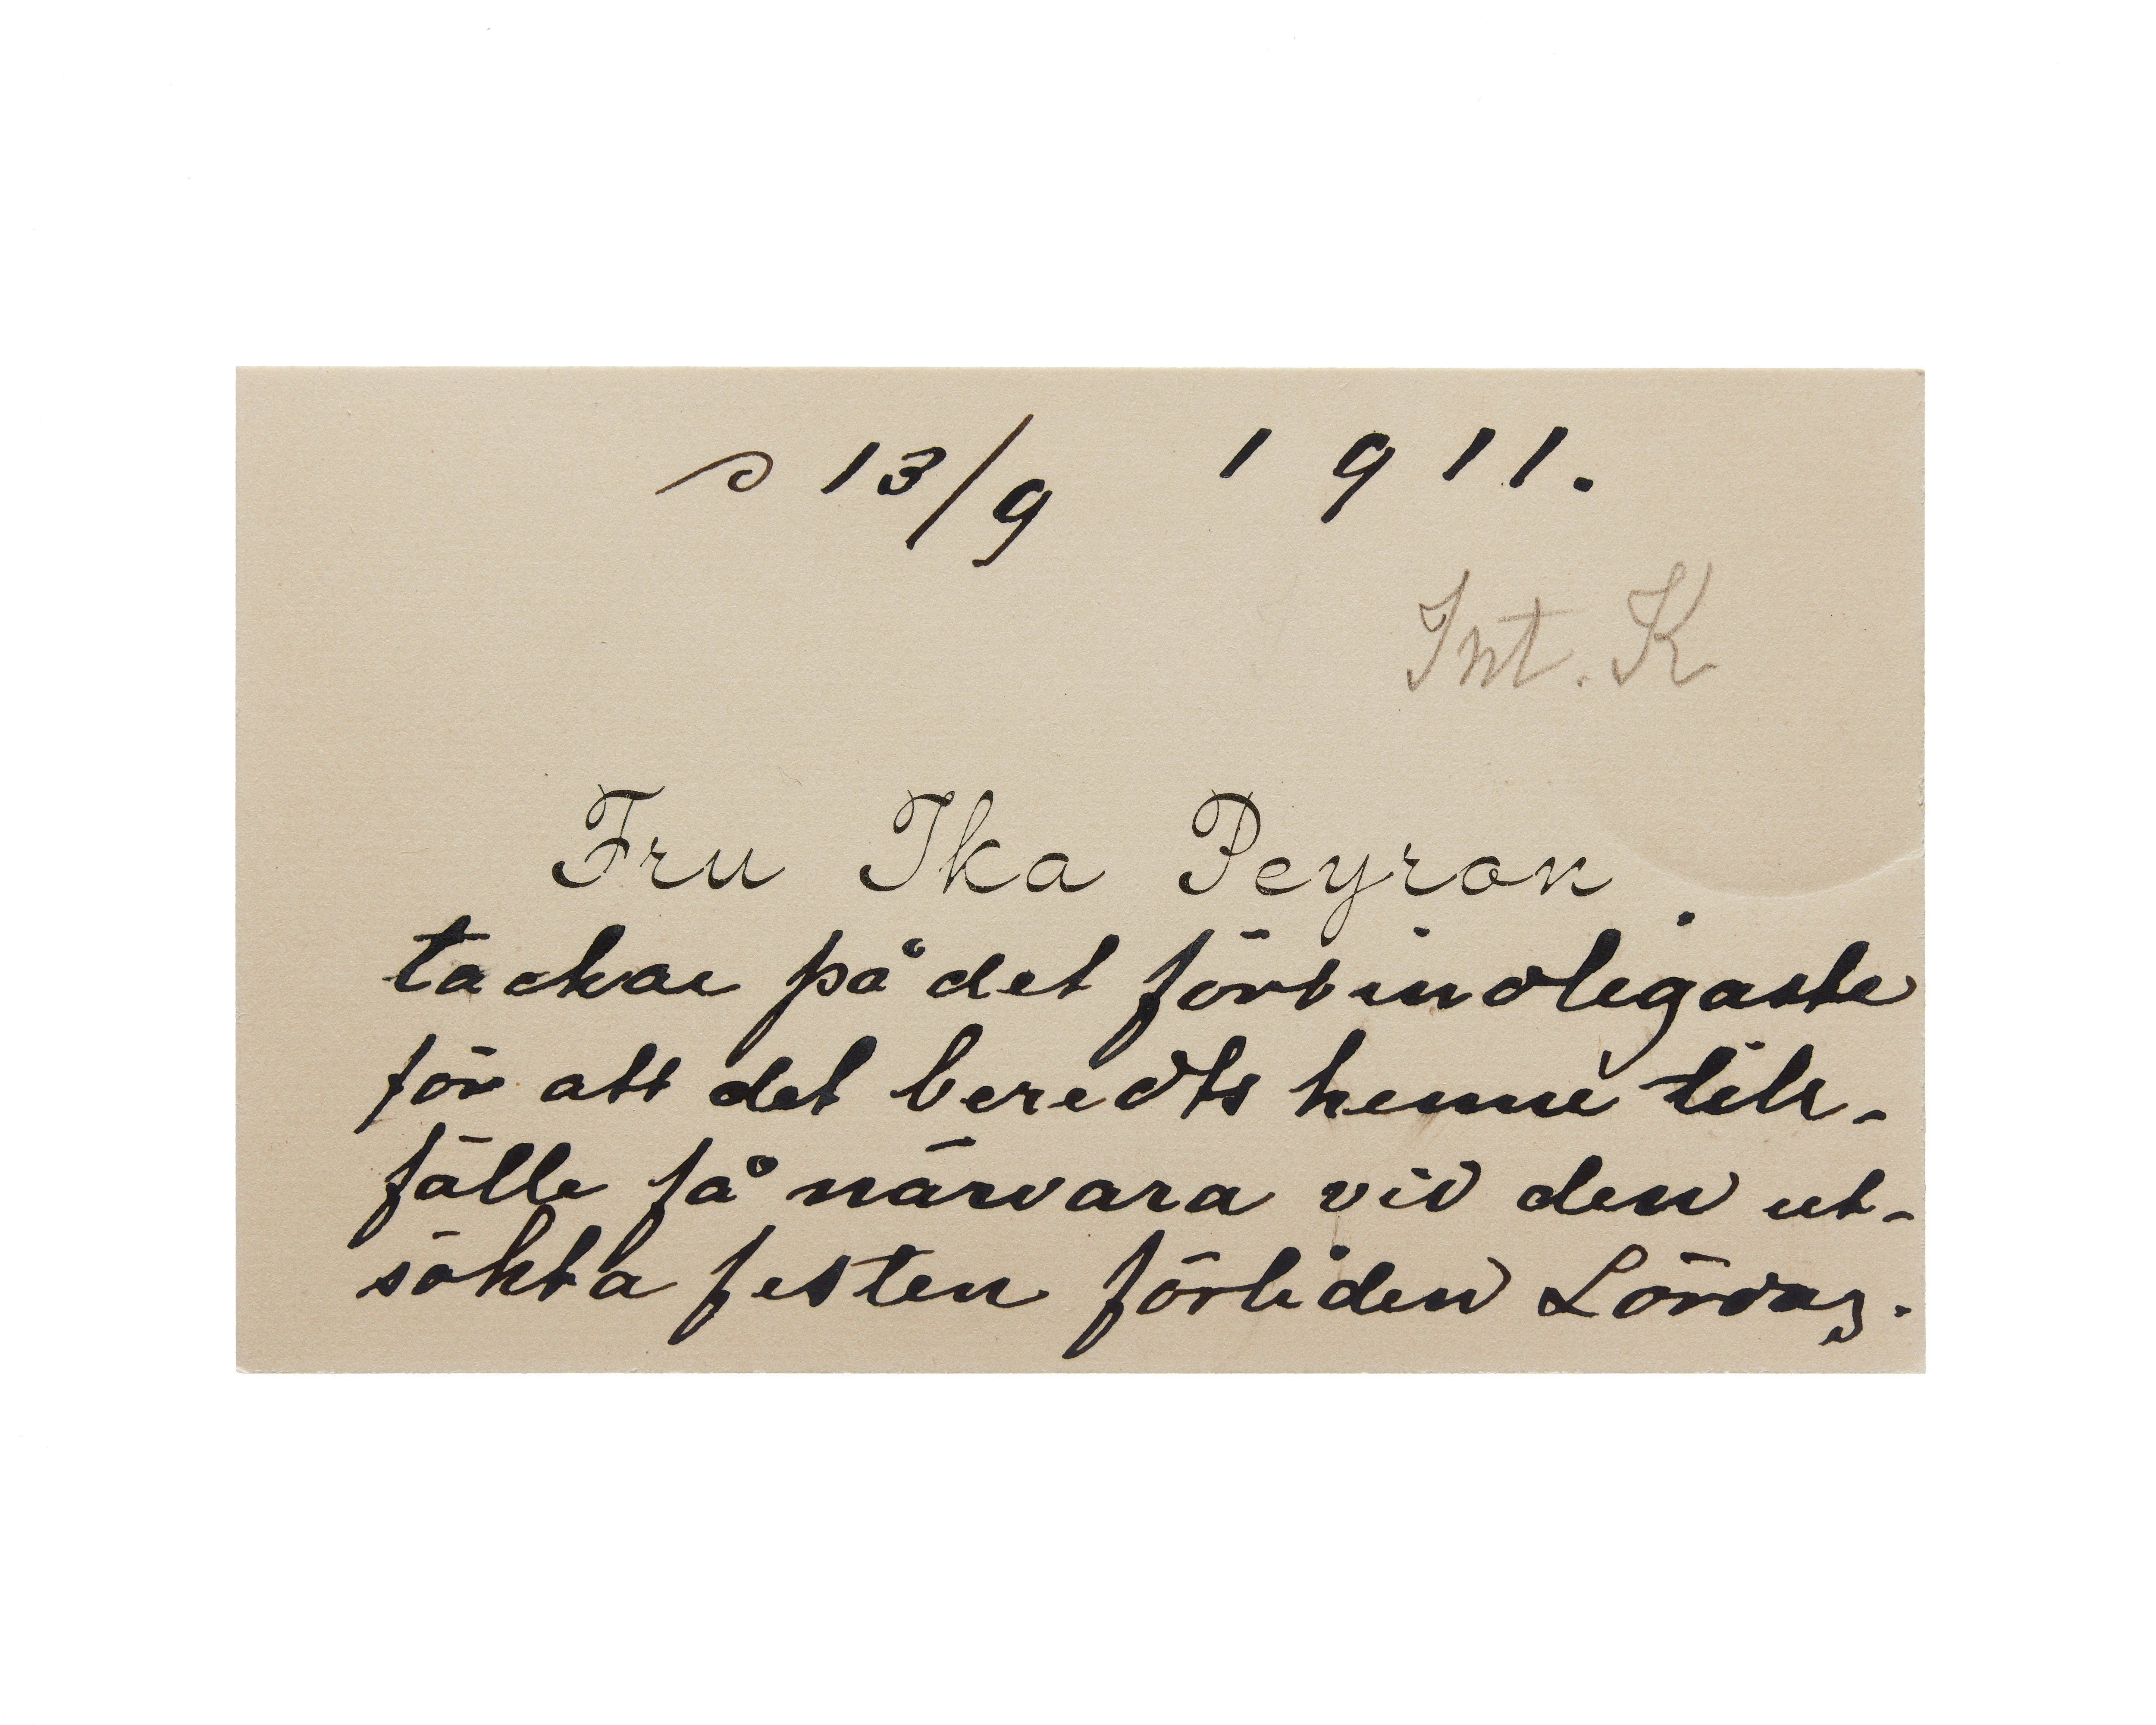 d 13/9 1911.
Int. K
Fru Ika Peyron
tackar på det förbindligaste
för att det beredts henne till-
fälle få närvara vid den ut-
sökta festen förliden Lördag.